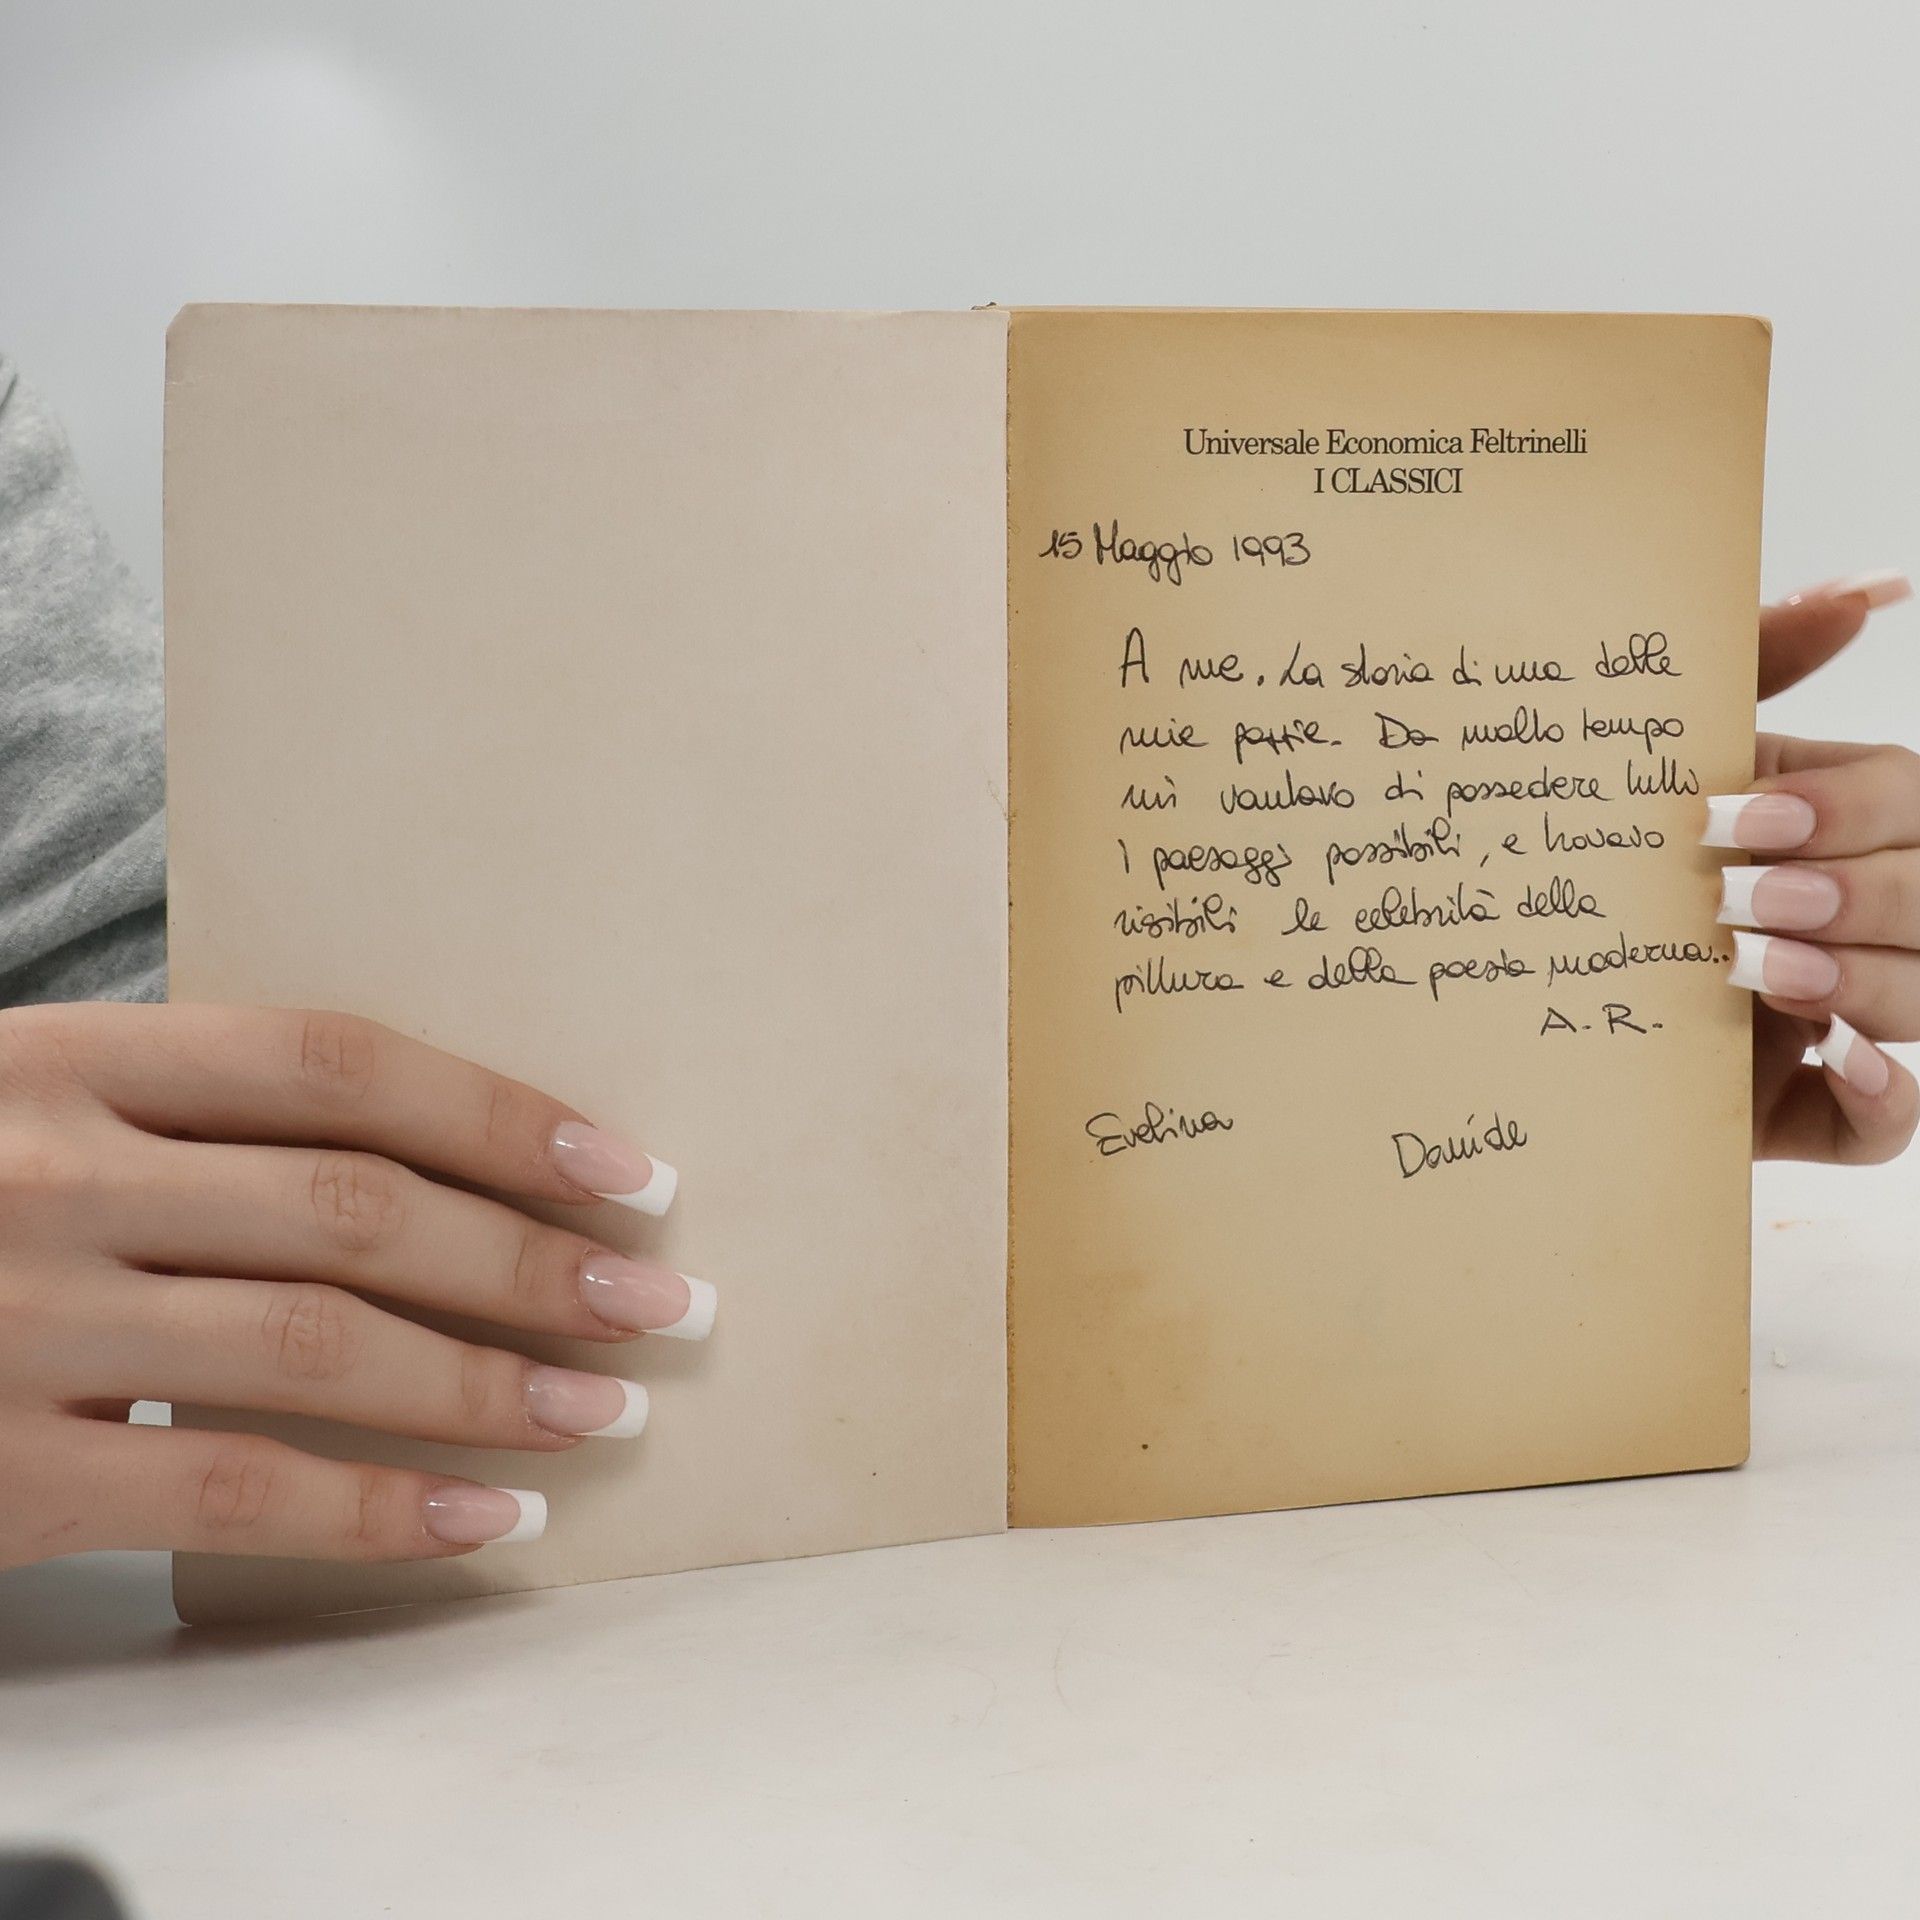 Universale Economica Feltrinelli
I CLASSICI
15 Maggio 1993
A me. La storia di una delle
mie pazzie. Da molto tempo
mi vantavo di possedere tutti
i paesaggi possibili, e trovavo
risibili le celebrità della
pittura e della poesia moderna..
A. R.
Evelina
Davide